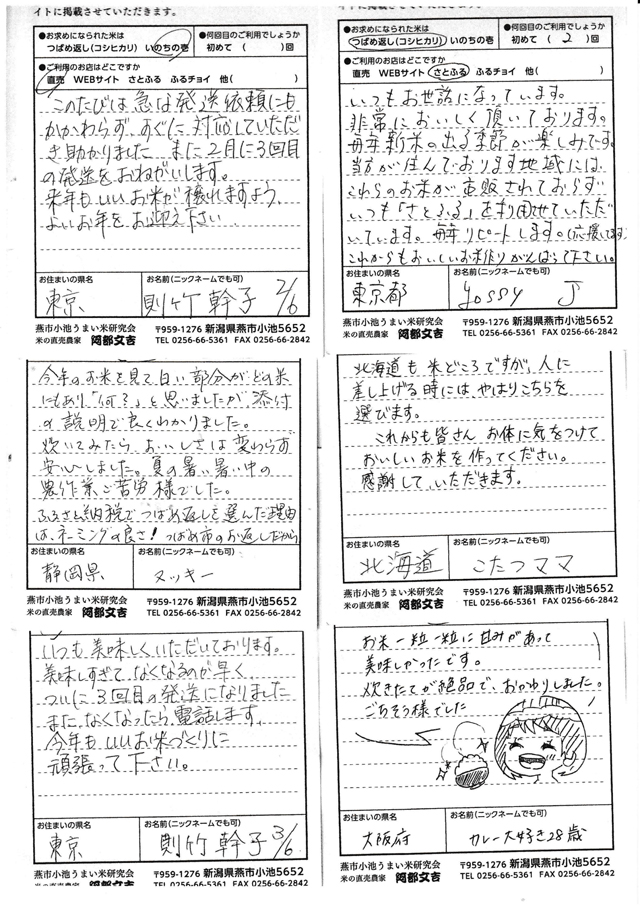 イトに掲載させていただきます。
●お求めになられた米は
つばめ返し(コシヒカリ) いのちの壱
●何回目のご利用でしょうか
初めて ( )回
●ご利用のお店はどこですか
直売 WEBサイト さとふる ふるチョイ 他( )
このたびは急な発送依頼にも
かかわらず、すぐに対応していただ
き助かりました。また2月に3回目
の発送をおねがいします。
来年もいいお米が穫れますよう、
よいお年をお迎え下さい
お住まいの県名
東京
お名前(ニックネームでも可)
則竹 幹子 2/6
燕市小池うまい米研究会
米の直売農家 阿部文吉
〒959-1276 新潟県燕市小池5652
TEL 0256-66-5361 FAX 0256-66-2842
イトに掲載させていただきます。
●お求めになられた米は
つばめ返し(コシヒカリ) いのちの壱
●何回目のご利用でしょうか
初めて ( 2 )回
●ご利用のお店はどこですか
直売 WEBサイト さとふる ふるチョイ 他( )
いつもお世話になっています。
非常においしく頂いております。
毎年新米の出る季節が楽しみです。
当方が住んでおります地域には
これらのお米が直販されておらず
いつも「さとふる」を利用させていただ
いています。毎年リピートします。(応援してます)
これからもおいしいお米作りがんばって下さい。
お住まいの県名
東京都
お名前(ニックネームでも可)
yossy J
燕市小池うまい米研究会
米の直売農家 阿部文吉
〒959-1276 新潟県燕市小池5652
TEL 0256-66-5361 FAX 0256-66-2842
今年のお米を見て白い部分がどの米
にもあり「何?」と思いましたが、添付
の説明で良くわかりました。
炊いてみたら、おいしさは変わらず
安心しました。夏の暑い暑い中の
農作業ご苦労様でした。
ふるさと納税でつばめ返しを選んだ理由
は、ネーミングの良さ! つばめ市のお返しだから
お住まいの県名
静岡県
お名前(ニックネームでも可)
ヌッキー
燕市小池うまい米研究会
米の直売農家 阿部文吉
〒959-1276 新潟県燕市小池5652
TEL 0256-66-5361 FAX 0256-66-2842
北海道も米どころですが、人に
差し上げる時には、やはりこちらを
選びます。
これからも皆さん お体に気をつけて
おいしいお米を作ってください。
感謝して、いただきます。
お住まいの県名
北海道
お名前(ニックネームでも可)
こたつママ
燕市小池うまい米研究会
米の直売農家 阿部文吉
〒959-1276 新潟県燕市小池5652
TEL 0256-66-5361 FAX 0256-66-2842
いつも美味しくいただいております。
美味しすぎてなくなるのが早く
ついに3回目の発送になりました
また、なくなったら、電話します。
今年もいいお米づくりに
頑張って下さい。
お住まいの県名
東京
お名前(ニックネームでも可)
則竹 幹子 3/6
燕市小池うまい米研究会
米の直売農家 阿部文吉
〒959-1276 新潟県燕市小池5652
TEL 0256-66-5361 FAX 0256-66-2842
お米一粒一粒に甘みがあって
美味しかったです。
炊きたてが絶品で、おかわりしました。
ごちそう様でした
お住まいの県名
大阪府
お名前(ニックネームでも可)
カレー大好き28歳
燕市小池うまい米研究会
米の直売農家 阿部文吉
〒959-1276 新潟県燕市小池5652
TEL 0256-66-5361 FAX 0256-66-2842